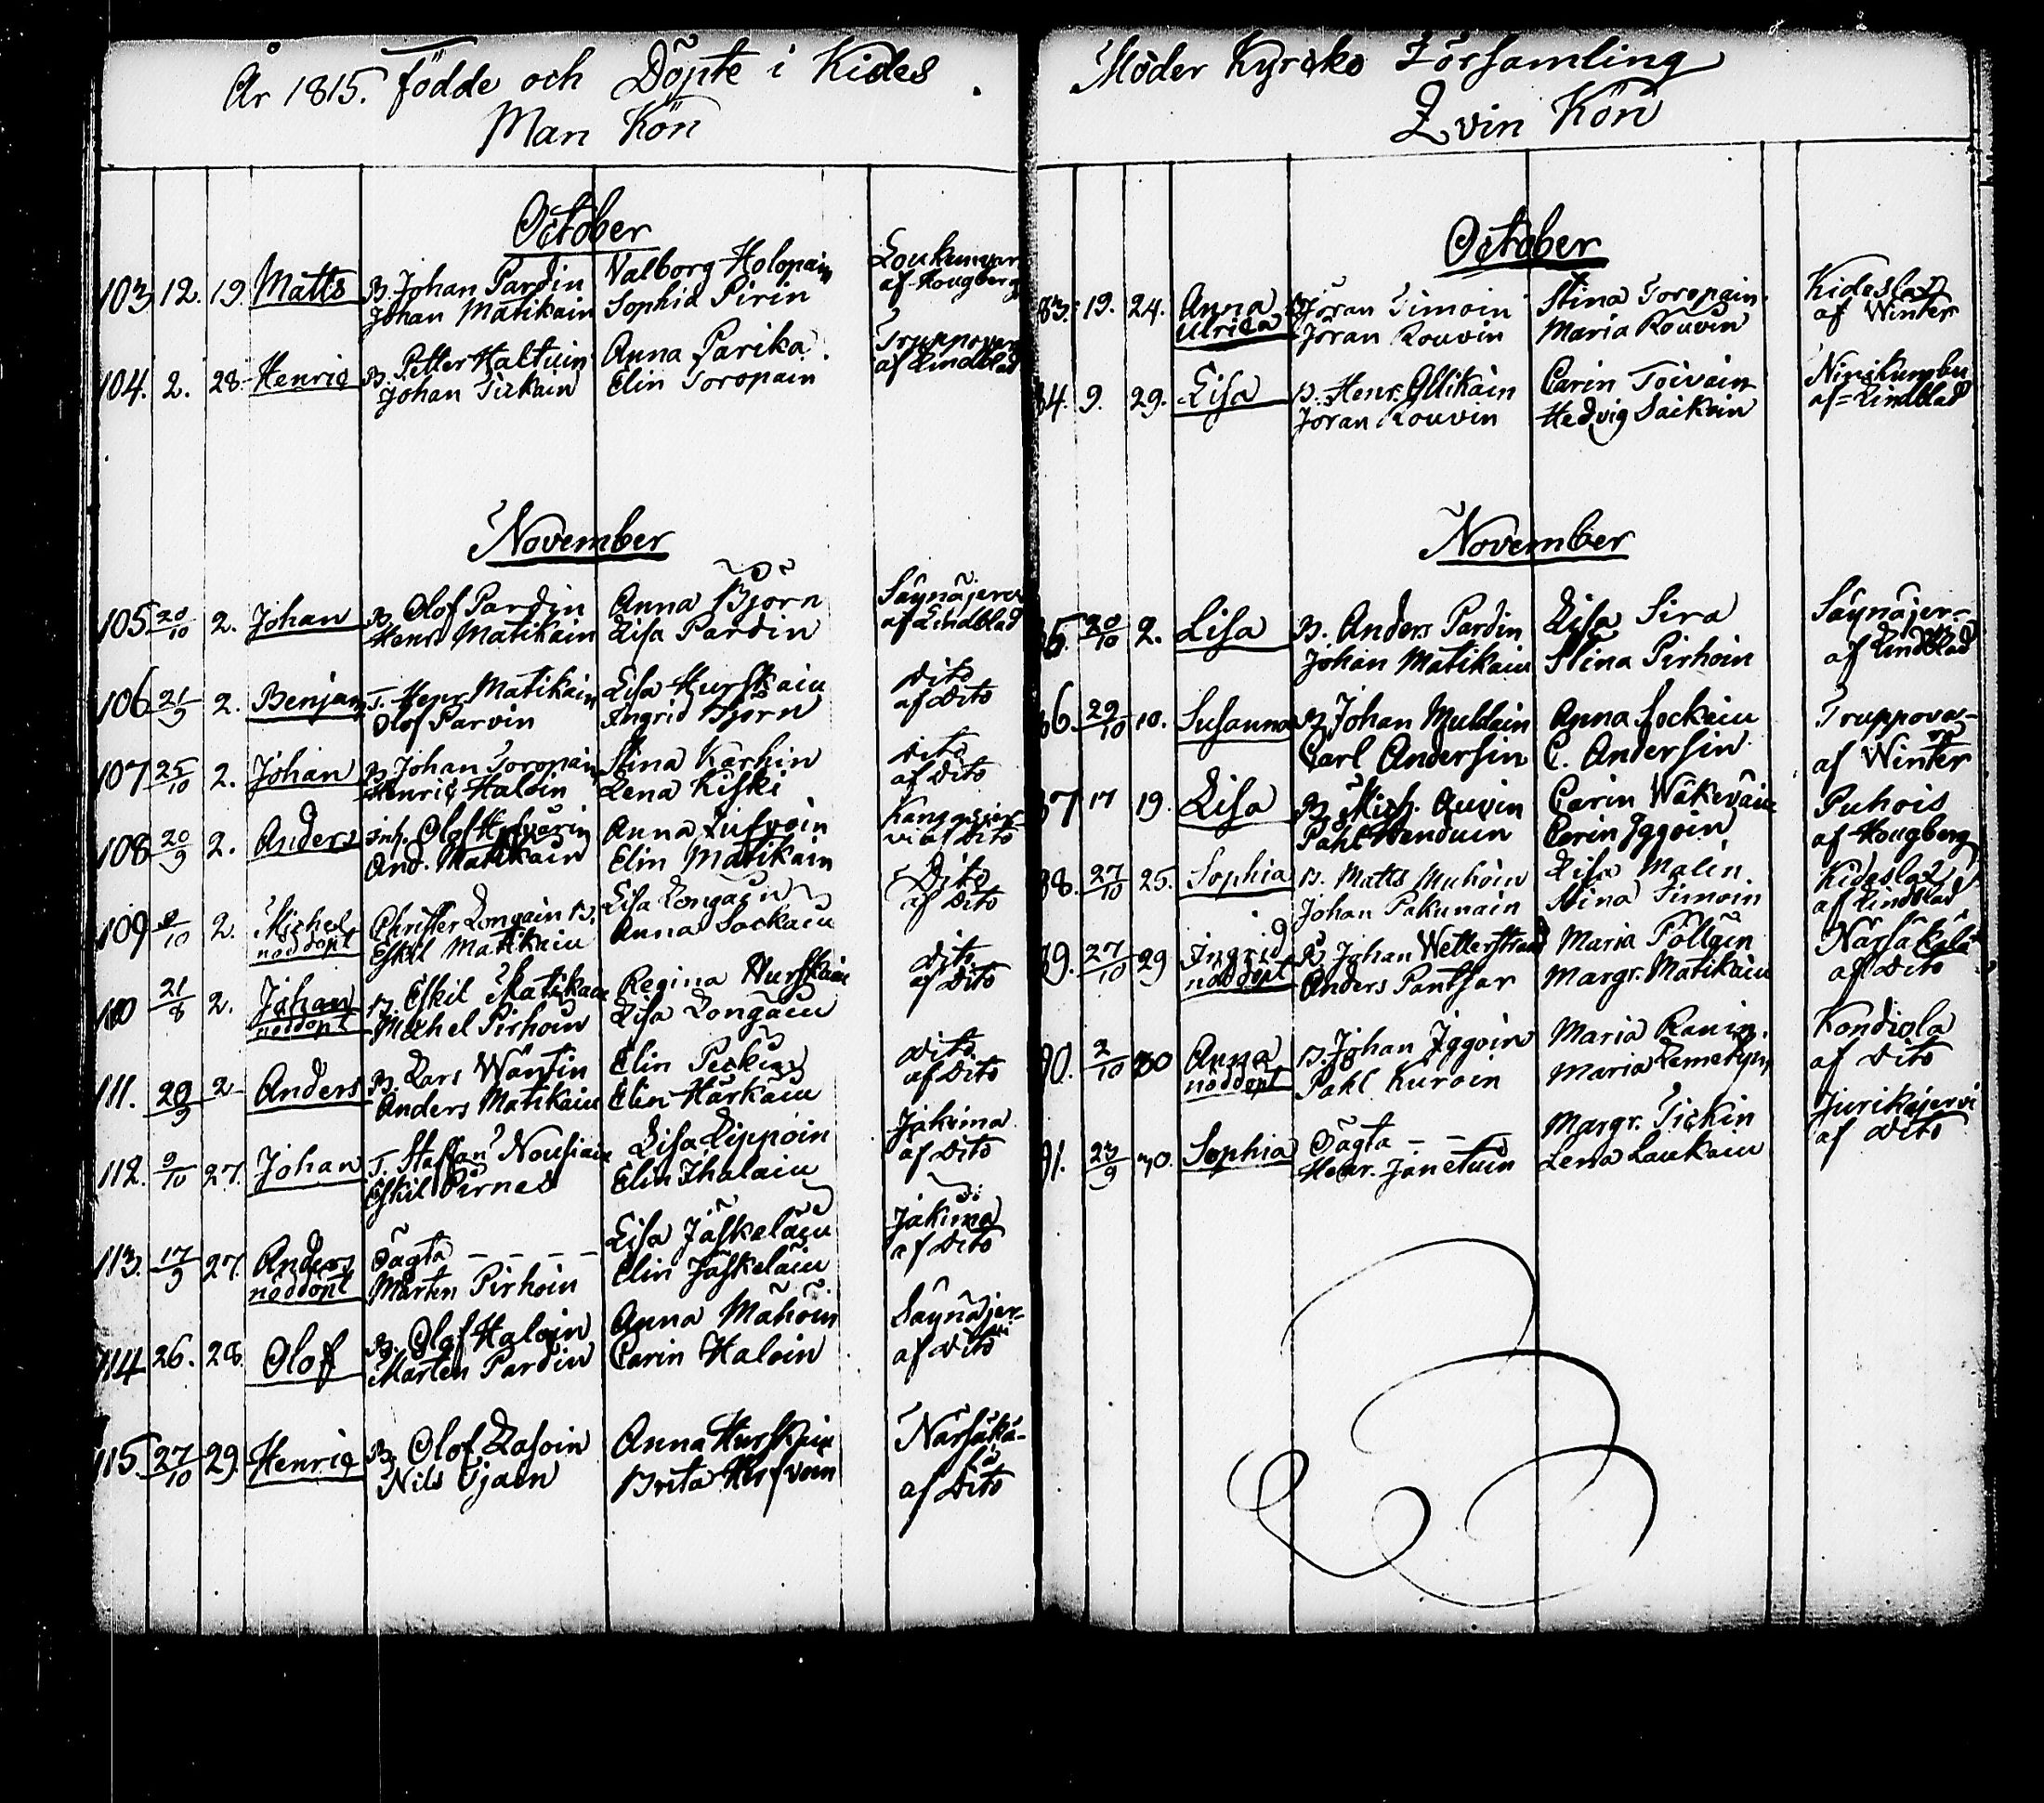 År 1815. Födde och Döpte i Kides
Man Kön
October
103. 12. 19. Matts B. Johan Pardin Valborg Holopain
Johan Matikain Sophia Pirin af Hougberg
104. 2. 28. Henric B. Petter Haltuin Anna Parika
Johan Tickain Elin Toropain af Lindblad
November
105 20/10 2. Johan B. Olof Pardin Anna Björn Säynäjerv
Henr. Matikain Lisa Pardin af Lindblad
106 21/9 2. Benjam T. Henr. Matikain Lisa Hurskain dito
Olof Parvin Ingrid Björn af dito
107 25/10 2. Johan B. Johan Toropain Stina Karhin dito
Henric Haloin Lena Kiski af dito
108 20/9 2. Anders Inh. Olof Anna
And. Matikain Elin Matikain vi af dito
109 /10 2. Michel Christer Longain B. Lisa Longain Dito
nöddöpt Eskil Matikain Anna Sockain af Dito
110 21/8 2. Johan B. Eskil Matikain Regina Hurskain dito
nöddöpt Michel Pirhoin Lisa Longain af dito
111. 29/9 2 Anders B. Lars Wäntin Elin dito
Anders Matikain Elin Härkain af dito
112. 9/10 27. Johan T. Staffan Nousiain Lisa Lippoin Jakima
Eskil Pirnes Elin Ihalain af dito
113. 17/9 27. Anders Oägta – – – – Lisa Jäskeläin Jakima
nöddöpt Mårten Pirhoin Elin Jäskeläin af dito
114 26. 28. Olof B. Olof Haloin Anna Mähöin Säynäjer-
Mårten Pardin Carin Haloin af dito
115. 27/10 29. Henric B. Olof Lasoin Anna Hurskain Närsäkä-
Nils Brita lä
af Dito
Moder Kyrcko Församling
Qvin Kön
October
83. 19. 24. Anna B. Jöran Timoin Stina Toropain Kideslax
Ulrica Jöran Rouvin Maria Rouvin af Winter
84. 9. 29. Lisa B. Henr. Ollikain Carin Toivain
Jöran Rouvin Hedvig Saikoin af Lindblad
November
85. 20/10 2. Lisa B. Anders Pardin Lisa Sira Säynäjer-
Johan Matikain Stina Pirhoin af Lindblad
86. 29/10 10. Susanna B. Johan Muldain Anna Sockain Truppova-
Carl Andersin C. Andersin ra
af Winter
87 17 19. Lisa B. Mich. Auvin Carin Wäkeväin Puhois
Pahl Carin Iggoin af Hougberg
88. 27/10 25. Sophia B. Matts Muhoin Lisa Malin Kideslax
Johan Pakunain Stina Timoin af Lindblad
89. 27/10 29 Ingrid B. Johan Wetterstrand Maria Pöllain Närsäkälä
nöddöpt Anders Pantsar Margr. Matikain af dito
90. 2/10 30 Anna B. Johan Iggoin Maria Ranin Kondiola
nöddöpt Pahl Kuroin Maria af dito
91. 23/9 30. Sophia Oägta – – – Margr. Tickin Jurikajervi
Henr. Janetuin Lena Laukain af dito